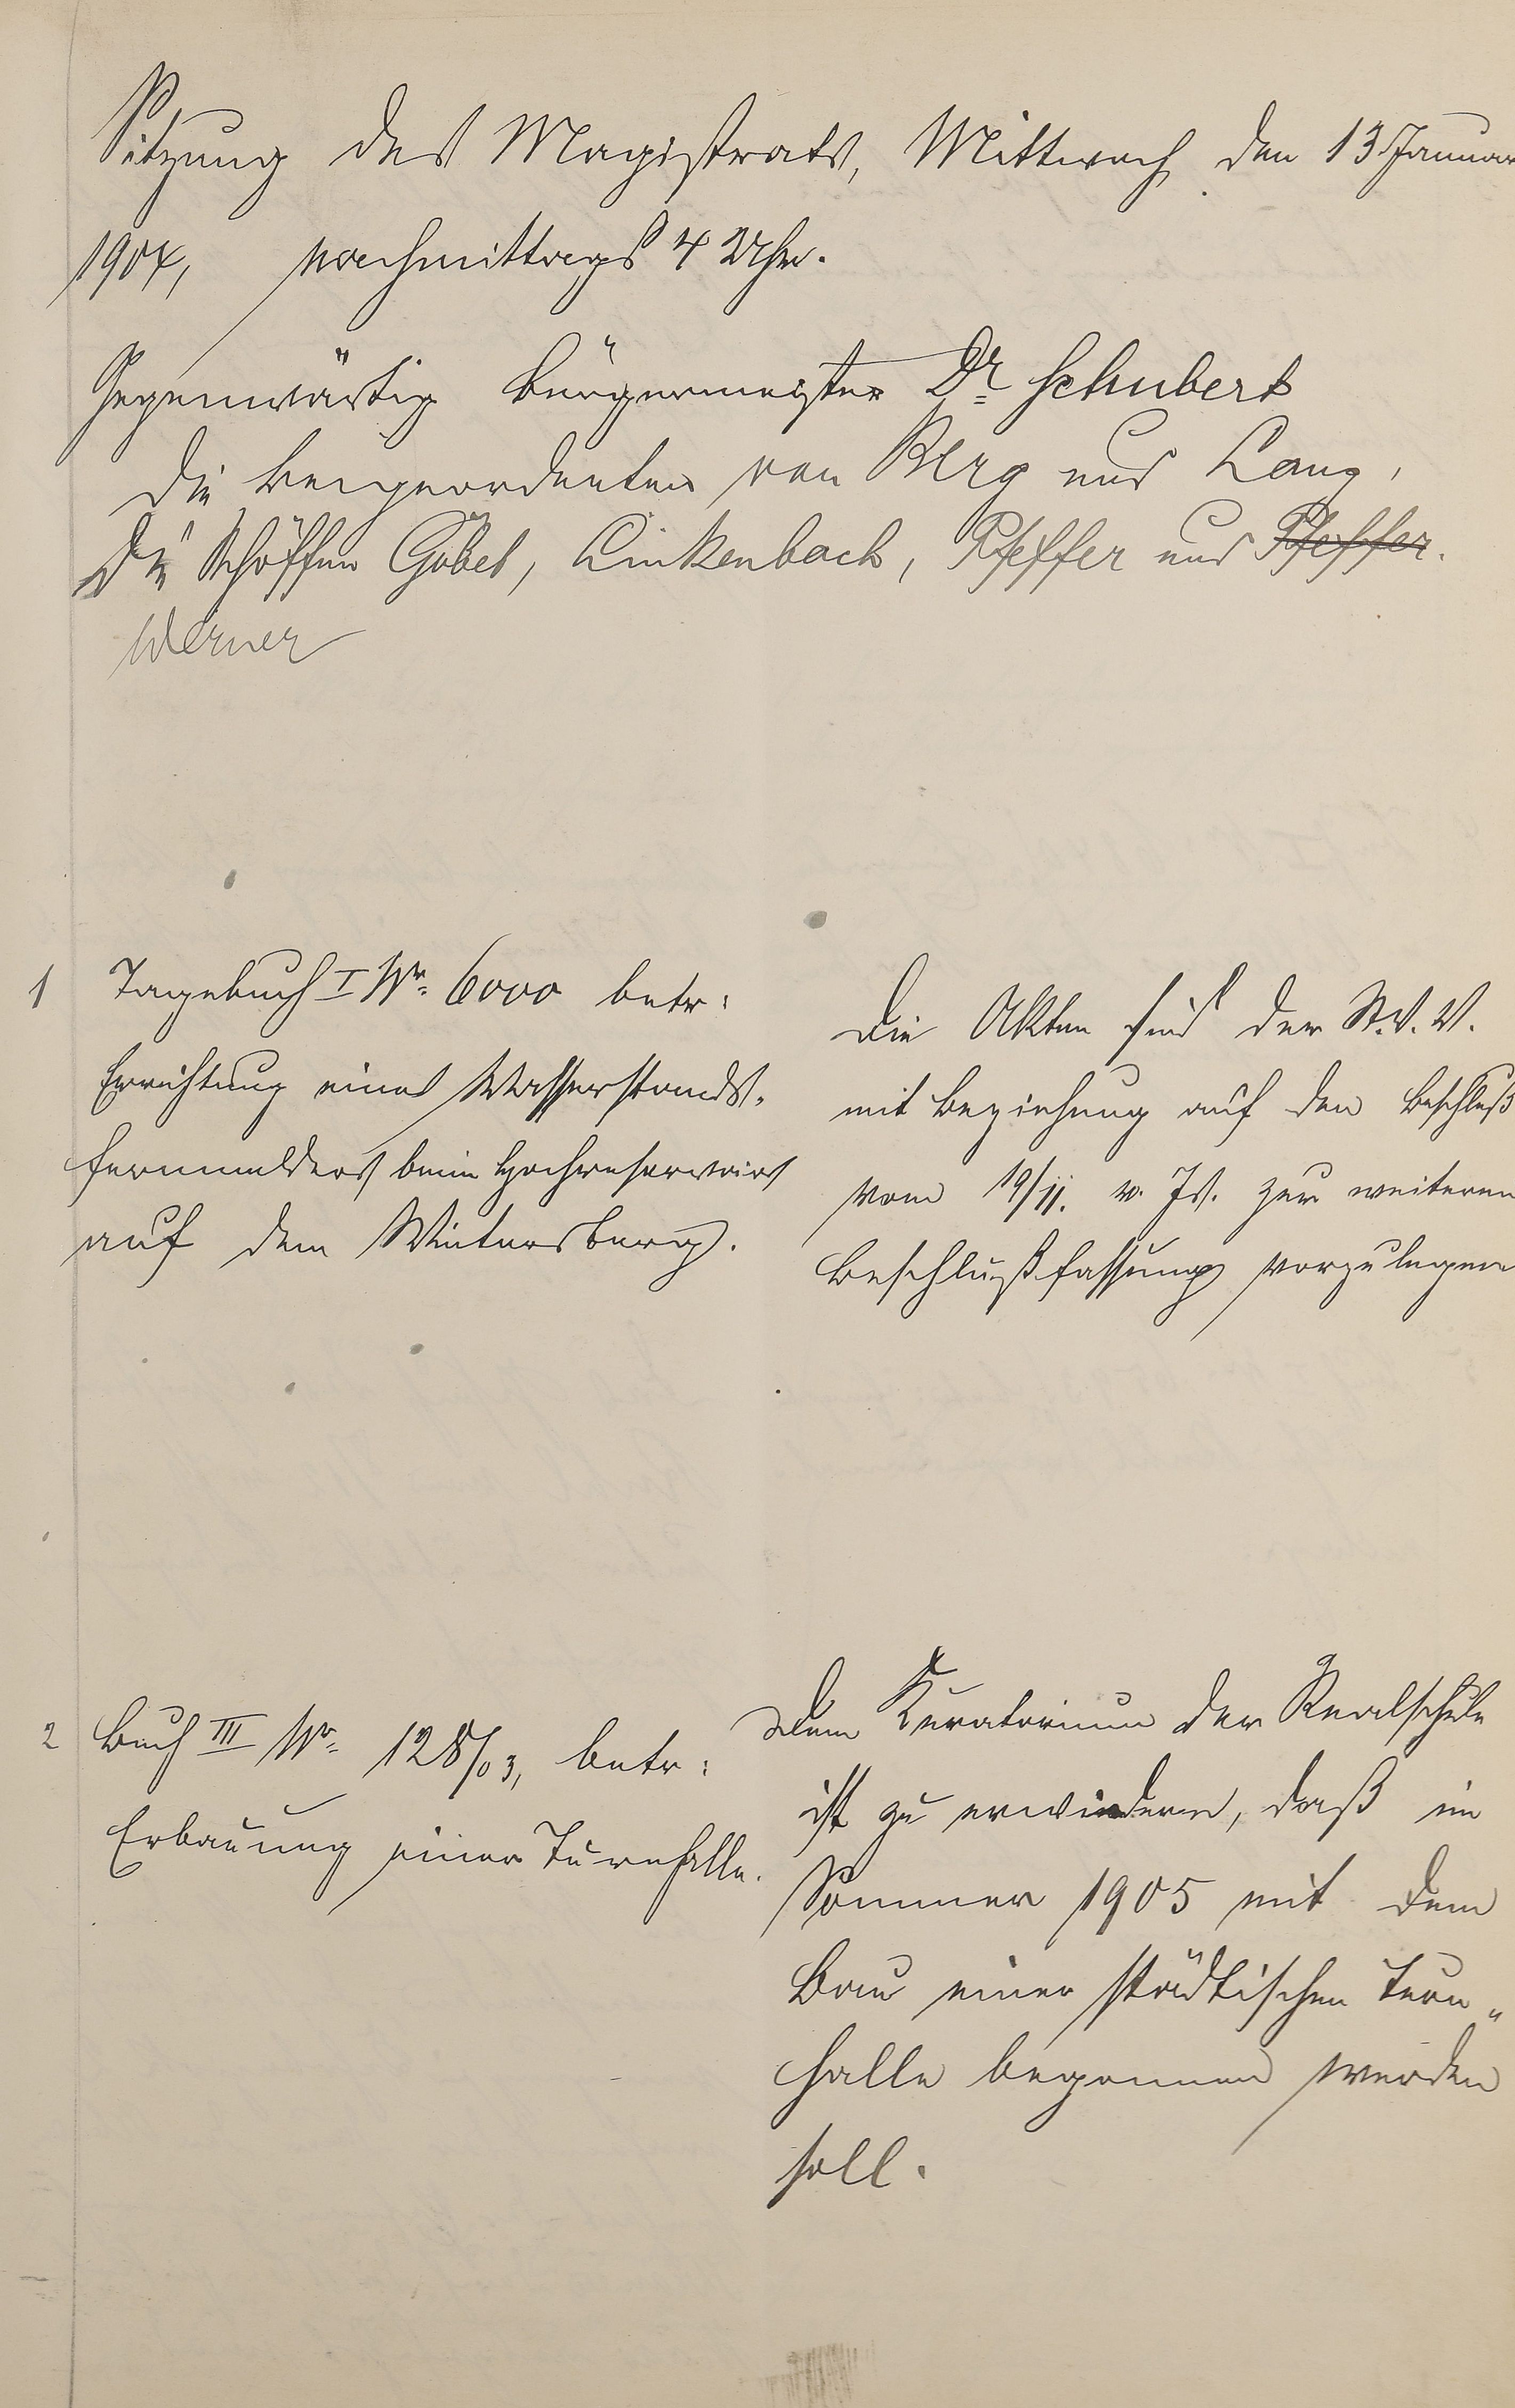 Sitzung des Magistrats, Mittwoch den 13 Januar
1904, nachmittags 4 Uhr.
Gegenwärtig Bürgermeister Dr. Schubert
Die Beigeordneten von Berg und Lang,
Die Schöffen Göbel, Linkenbach, Pfeffer und Pfeffer.
Werner
1 Tagebuch I Nr. 6000 betr:
Errichtung eines Wasserstands-
fernmelders beim Hochreservoirs
auf dem Wintersberg.
Die Akten sind der St. V. V.
mit Beziehung auf den Beschluß
vom 19/11. v. Js. zur weiteren
Beschlußfassung vorzulegen
2 Buch III Nr. 128/03, betr:
Erbauung einer Turnhalle.
Dem Kuratorium der Realschule
ist zu erwidern, daß im
Sommer 1905 mit dem
Bau einer städtischen Turn-
halle begonnen werden
soll.